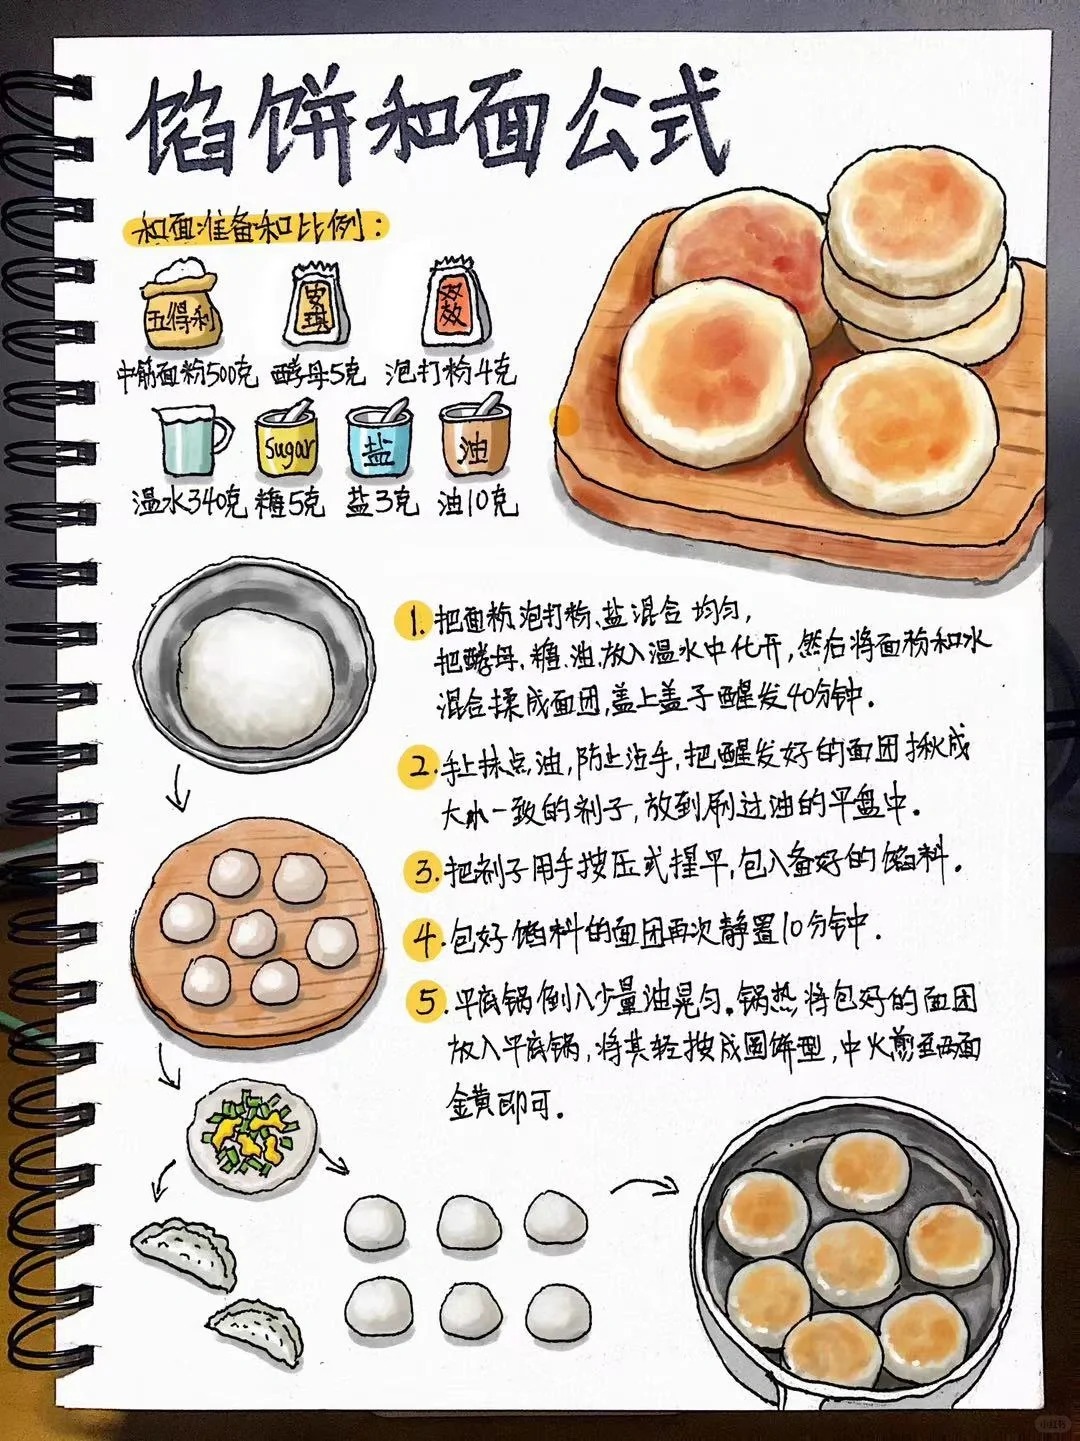 馅饼和面公式
和面准备和比例：
五得利
安琪
双效
中筋面粉500克 酵母5克 泡打粉4克
Sugar
盐
油
温水340克 糖5克 盐3克 油10克
1. 把面粉、泡打粉、盐混合均匀，
把酵母、糖、油、放入温水中化开，然后将面粉和水
混合揉成面团，盖上盖子醒发40分钟。
2. 手上抹点油，防止沾手，把醒发好的面团揪成
大小一致的剂子，放到刷过油的平盘中。
3. 把剂子用手按压或擀平，包入备好的馅料。
4. 包好馅料的面团再次静置10分钟。
5. 平底锅倒入少量油晃匀。锅热将包好的面团
放入平底锅，将其轻按成圆饼型，中火煎至两面
金黄即可。
小红书